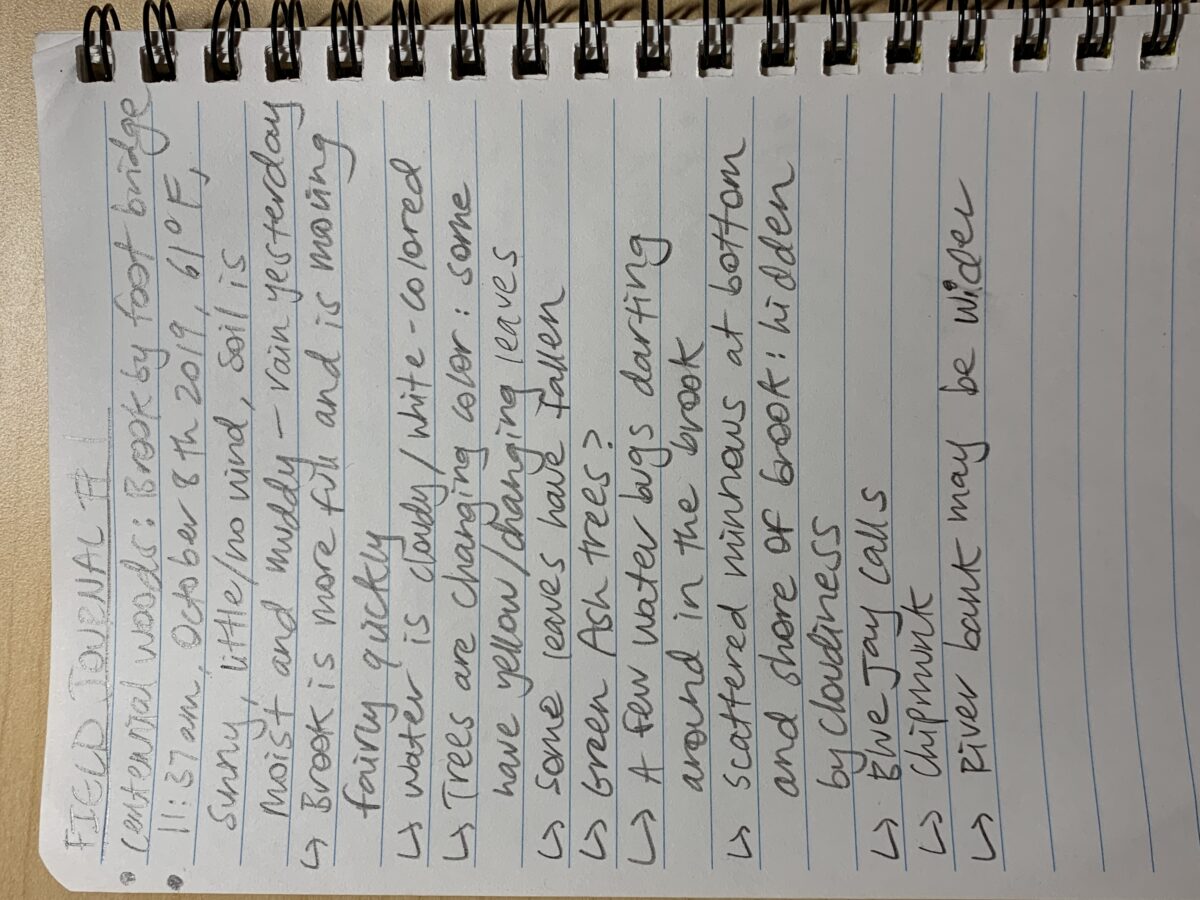 FIELD JOURNAL #1
• Centennial woods: Brook by foot bridge
• 11:37am, October 8th 2019, 61°F,
Sunny, little/no wind, Soil is
moist and muddy – rain yesterday
↳ Brook is more full and is moving
fairly quickly
↳ water is cloudy/white-colored
↳ Trees are changing color: some
have yellow/changing leaves
↳ some leaves have fallen
↳ Green Ash trees?
↳ A few water bugs darting
around in the brook
↳ scattered minnows at bottom
and shore of brook: hidden
by cloudiness
↳ Blue Jay calls
↳ Chipmunk
↳ River bank may be wider